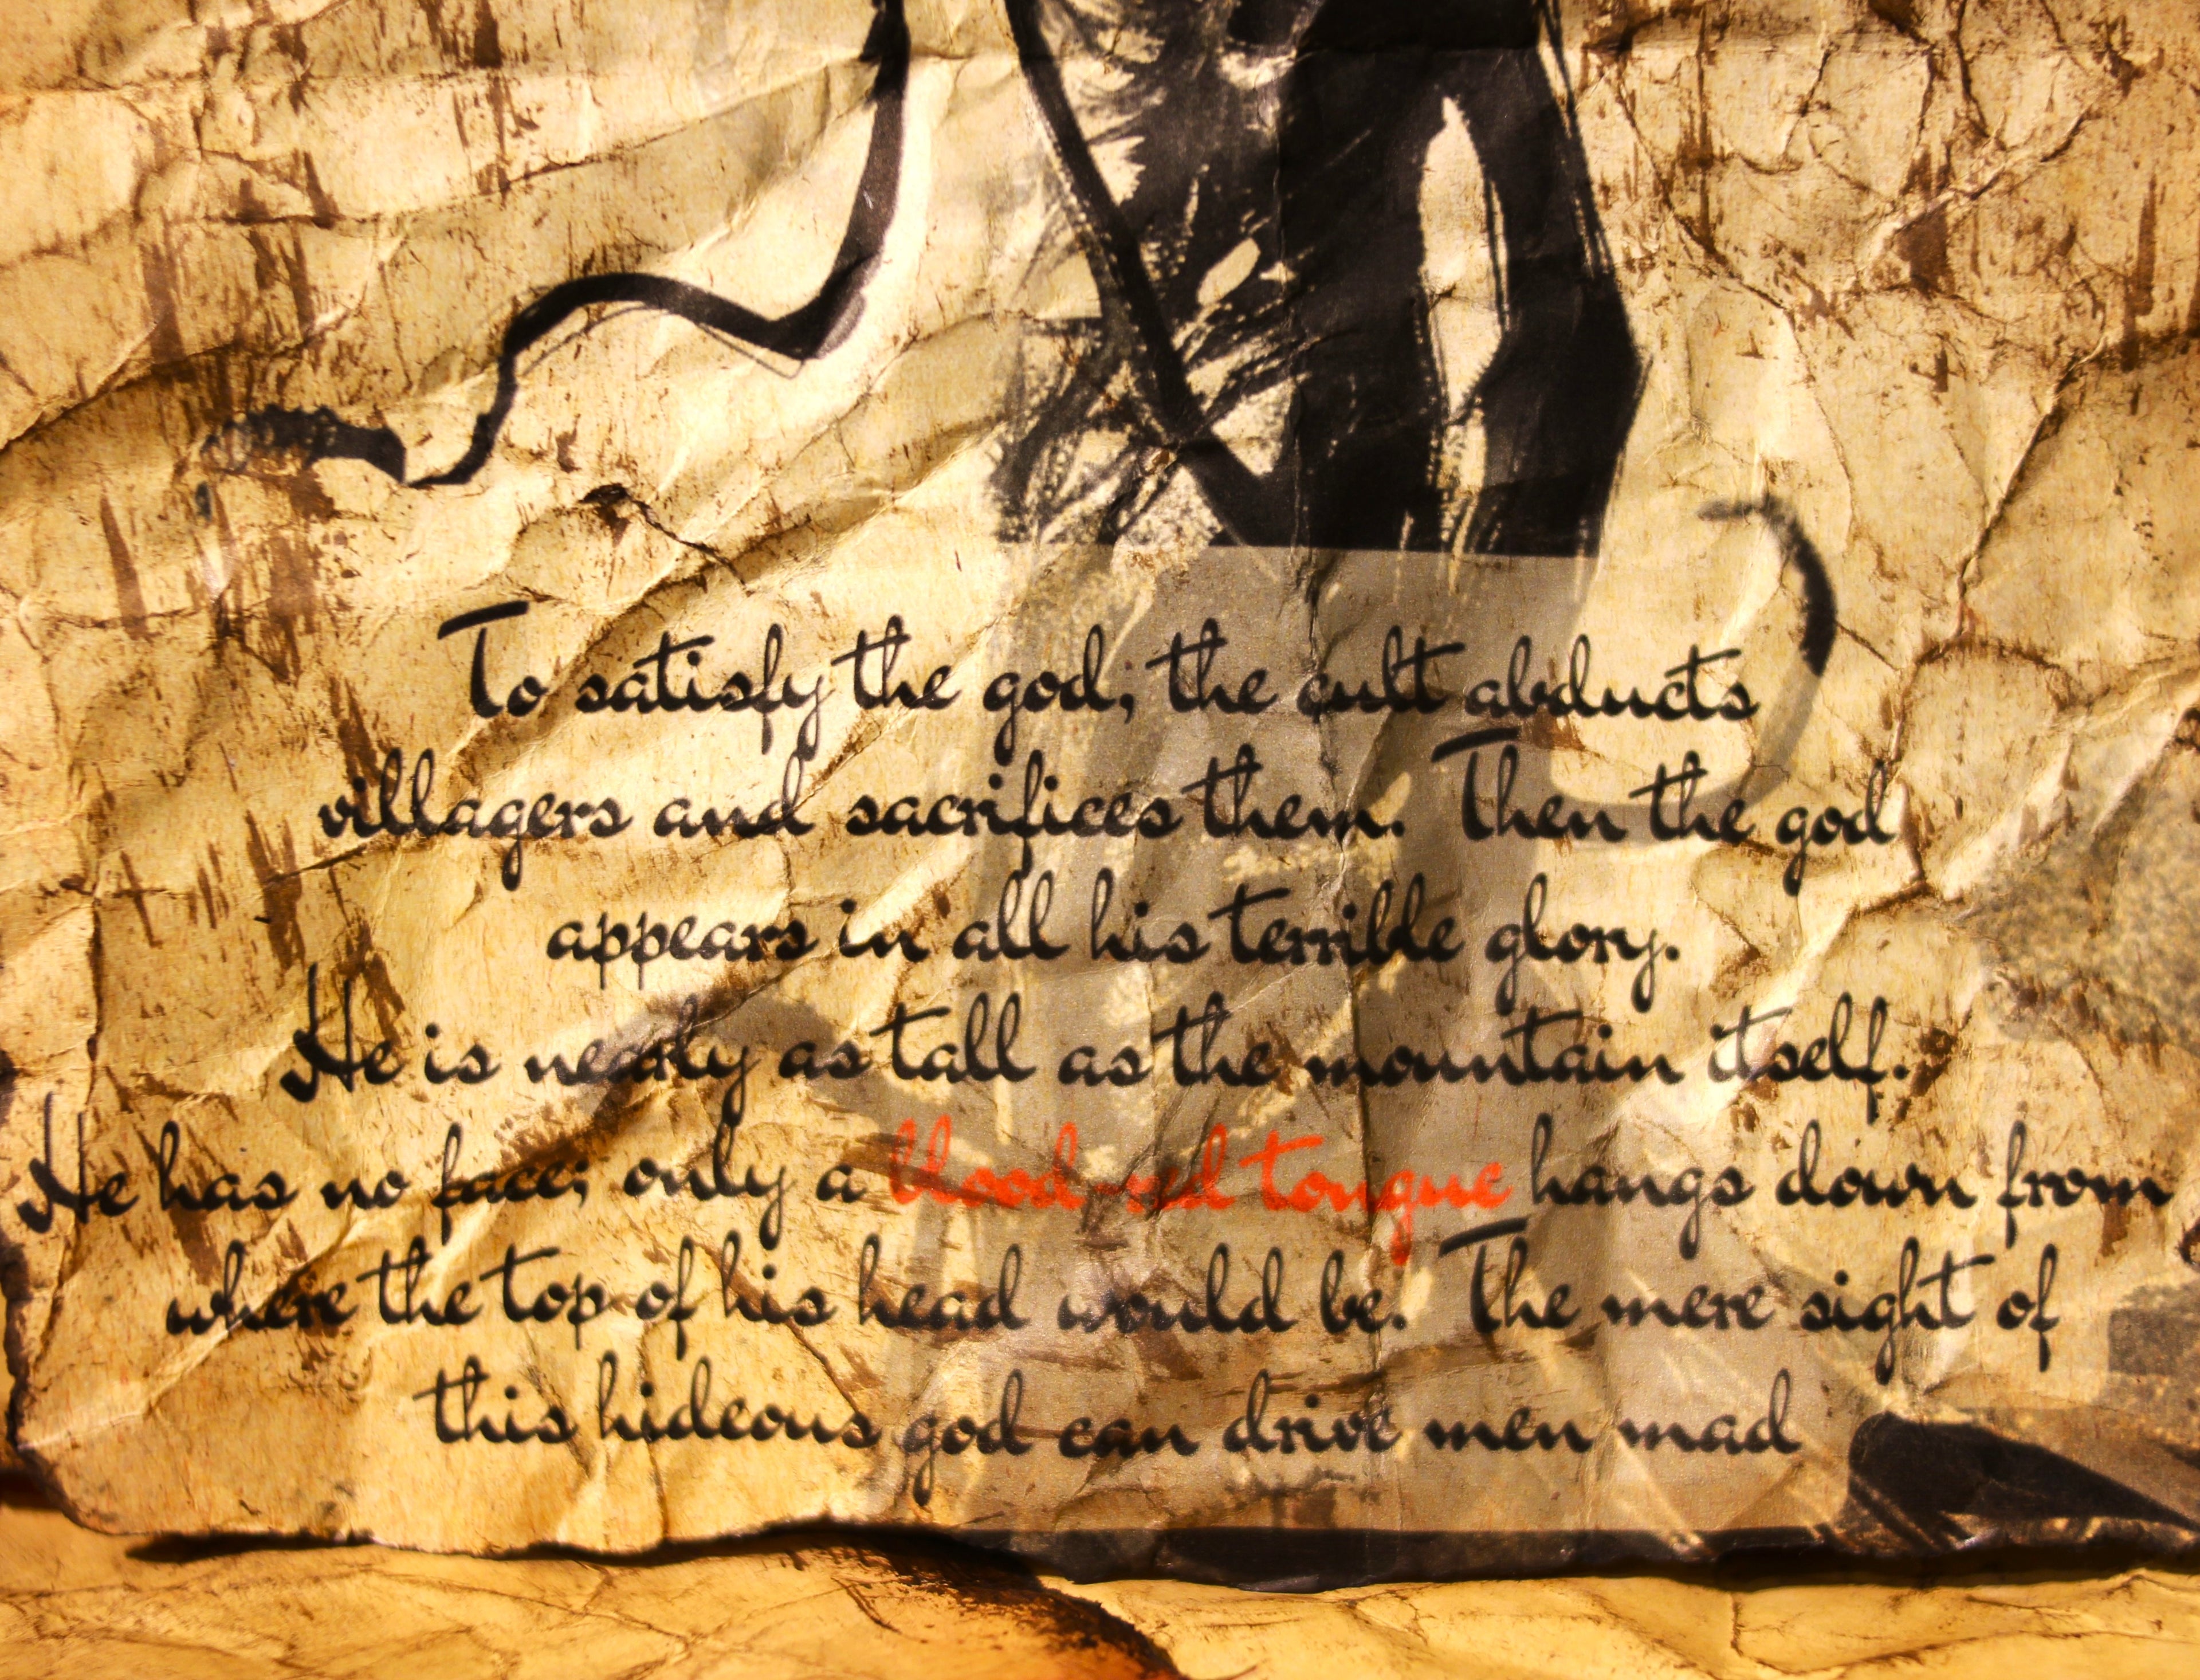 To satisfy the god, the cult abducts
villagers and sacrifices them. Then the god
appears in all his terrible glory.
He is nearly as tall as the mountain itself.
He has no face; only a blood-red tongue hangs down from
where the top of his head would be. The mere sight of
this hideous god can drive men mad